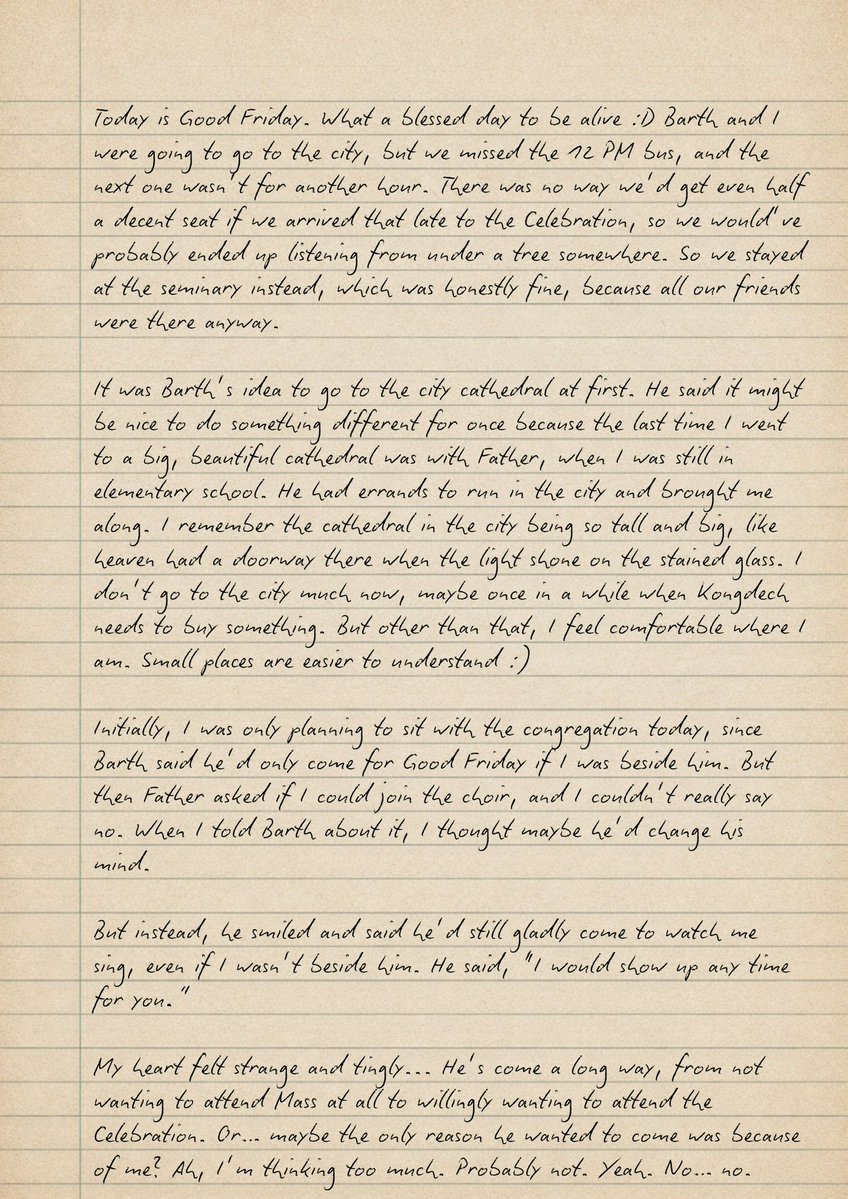 Today is Good Friday. What a blessed day to be alive :D Barth and I
were going to go to the city, but we missed the 12 PM bus, and the
next one wasn't for another hour. There was no way we'd get even half
a decent seat if we arrived that late to the Celebration, so we would've
probably ended up listening from under a tree somewhere. So we stayed
at the seminary instead, which was honestly fine, because all our friends
were there anyway.

It was Barth's idea to go to the city cathedral at first. He said it might
be nice to do something different for once because the last time I went
to a big, beautiful cathedral was with Father, when I was still in
elementary school. He had errands to run in the city and brought me
along. I remember the cathedral in the city being so tall and big, like
heaven had a doorway there when the light shone on the stained glass. I
don't go to the city much now, maybe once in a while when Kongdech
needs to buy something. But other than that, I feel comfortable where I
am. Small places are easier to understand :)

Initially, I was only planning to sit with the congregation today, since
Barth said he'd only come for Good Friday if I was beside him. But
then Father asked if I could join the choir, and I couldn't really say
no. When I told Barth about it, I thought maybe he'd change his
mind.

But instead, he smiled and said he'd still gladly come to watch me
sing, even if I wasn't beside him. He said, "I would show up any time
for you."

My heart felt strange and tingly... He's come a long way, from not
wanting to attend Mass at all to willingly wanting to attend the
Celebration. Or... maybe the only reason he wanted to come was because
of me? Ah, I'm thinking too much. Probably not. Yeah. No... no.